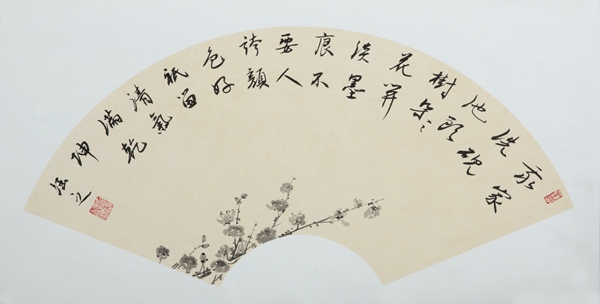 我家
洗硯
池頭
樹朵〻
花開
淡墨
痕不
要人
誇顏
色好
祇留
清氣
滿乾
坤